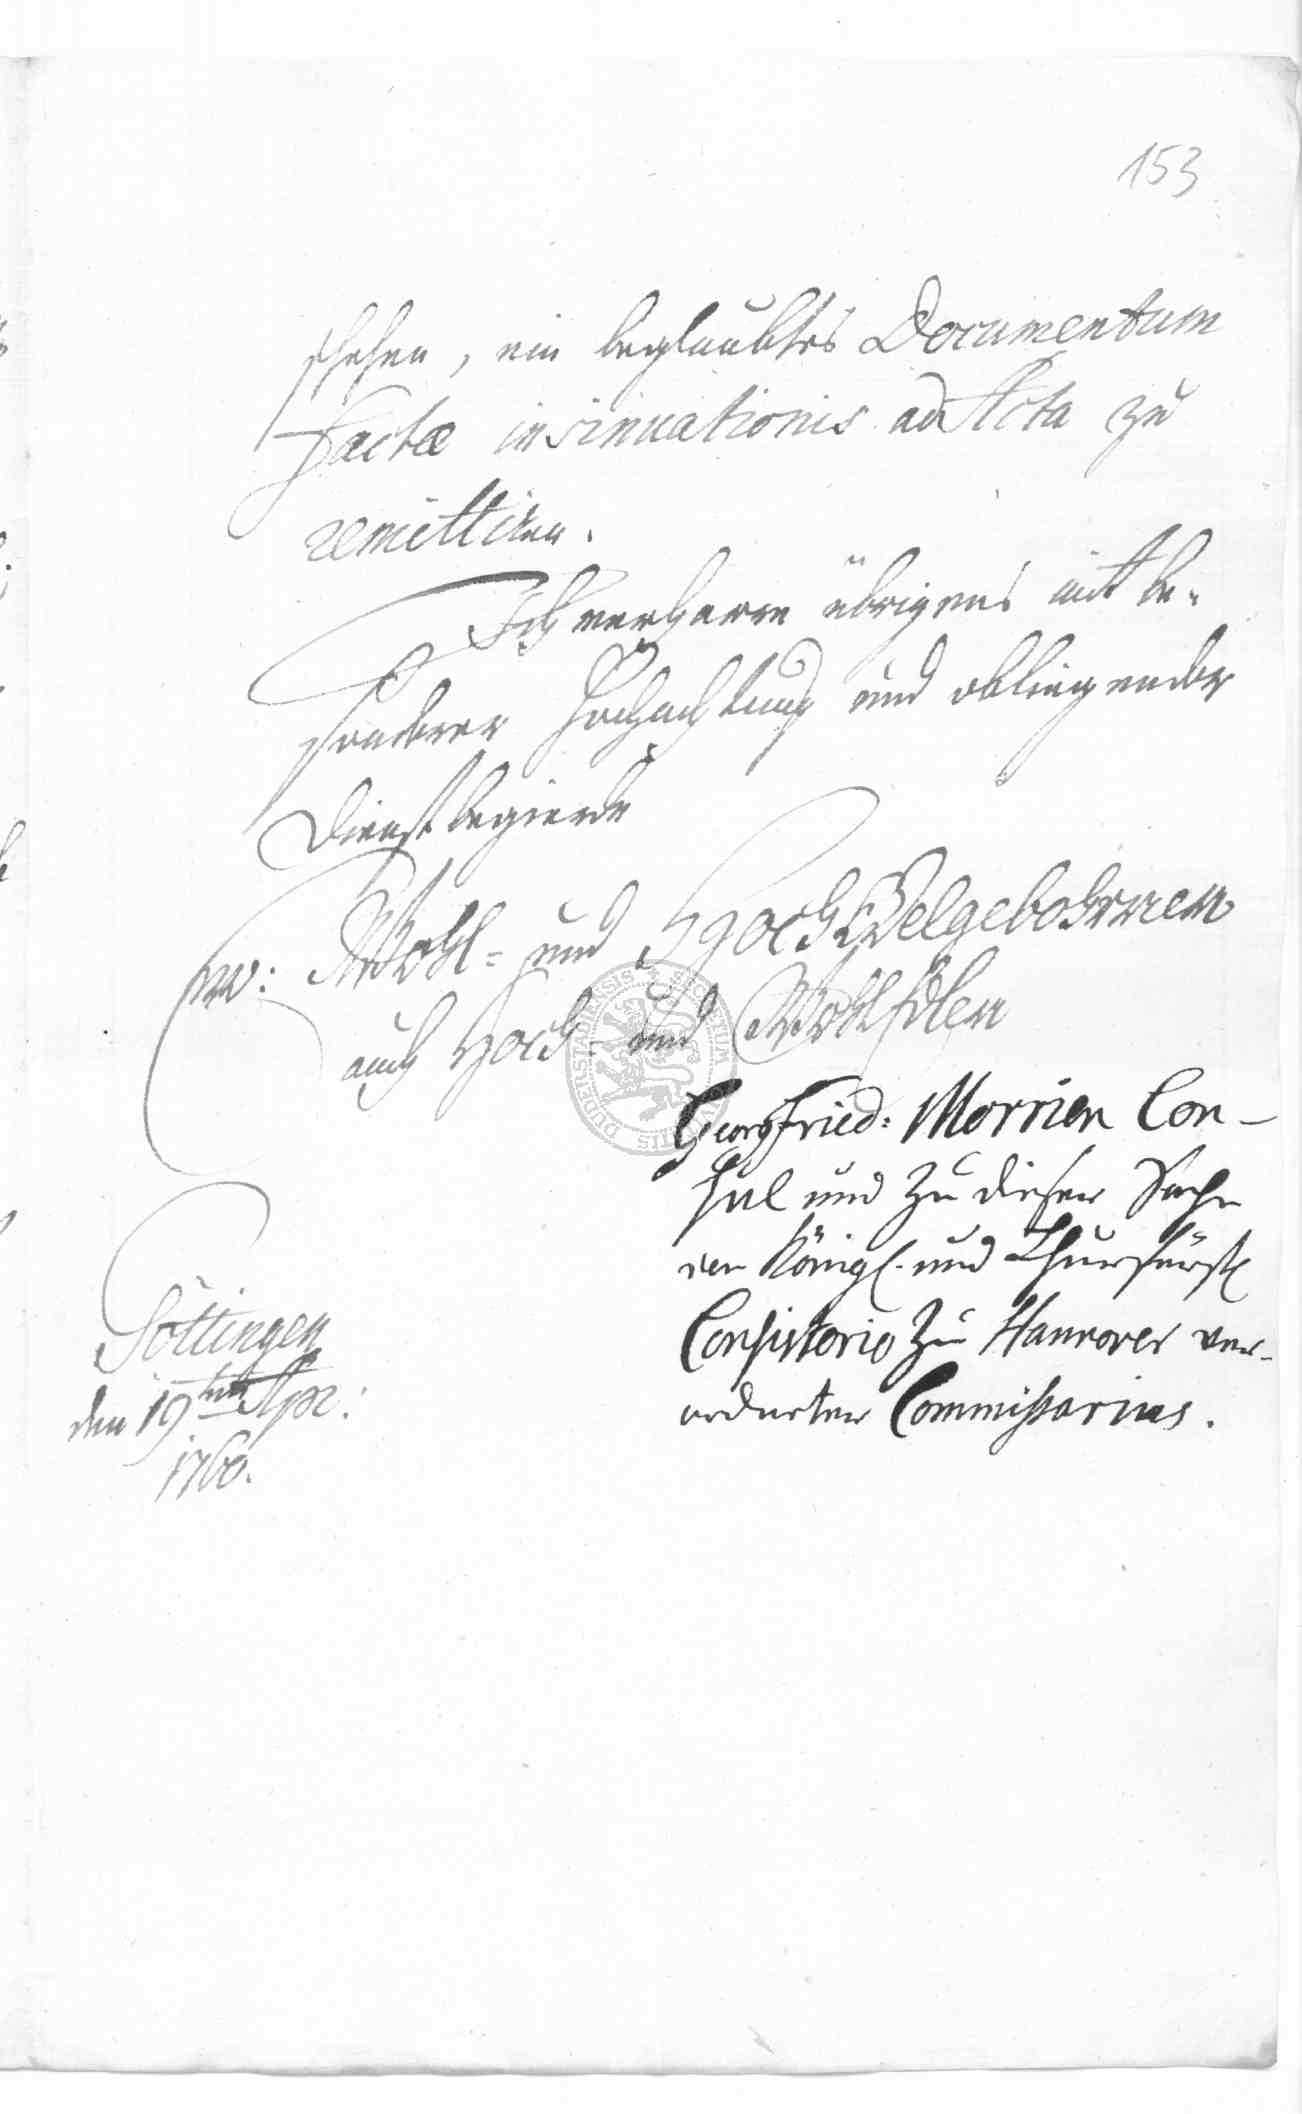 153
schehen, ein beglaubtes Documentum
factæ insinuationis ad Acta zu
remittiren.
Ich verharre übrigens mit be-
sonderer Hochachtung und obliegender
Dienstbegierde
Ew: Wohl- und HochEdelgebohrnen
auch Hoch- und WohlEdlen
Georg Fried: Morrien Con-
sul und zu dieser Sache
von Königl. und Churfürstl
Consistorio zu Hannover ver-
ordneter Commissarius.
Göttingen
den 19ten Apr:
1760.
SIGILLUM CIVITATIS DUDERSTADIENSIS